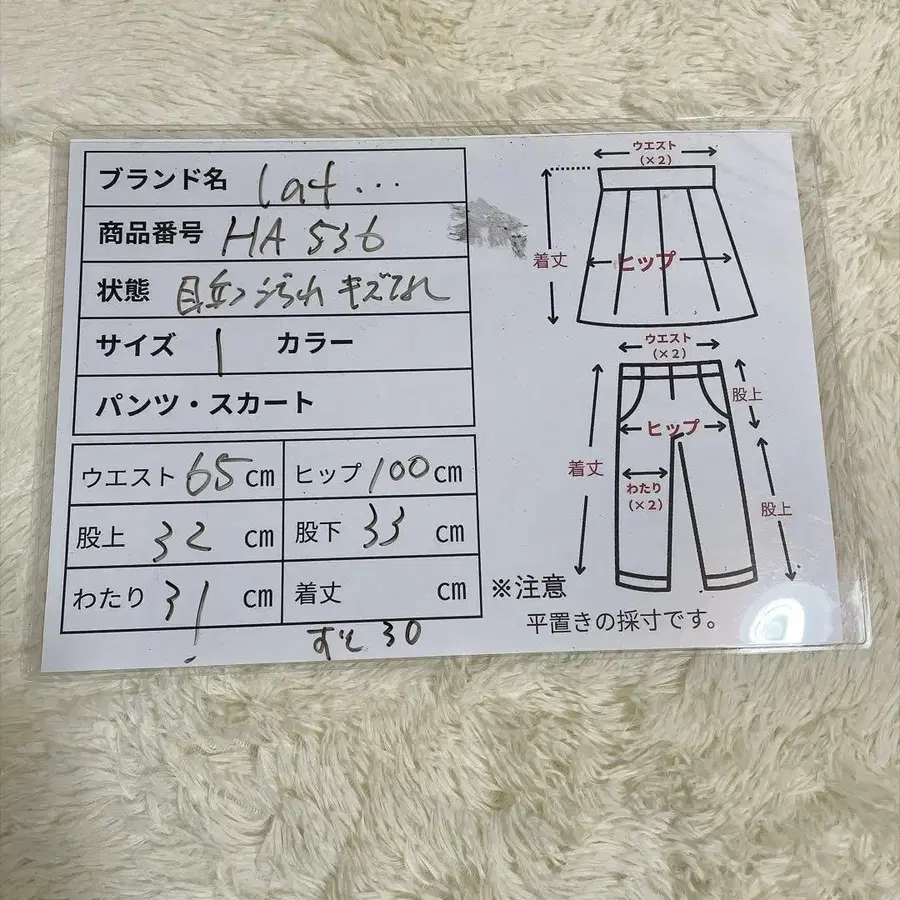 ブランド名 la4...
商品番号 HA 536
状態 目立つ汚れ キズなし
サイズ 1 カラー
パンツ・スカート
ウエスト 65 cm ヒップ 100 cm
股上 32 cm 股下 33 cm
わたり 31 cm 着丈 cm
すそ 30
ウエスト
(×2)
着丈
ヒップ
ウエスト
(×2)
股上
ヒップ
着丈
わたり
(×2)
股上
※注意
平置きの採寸です。